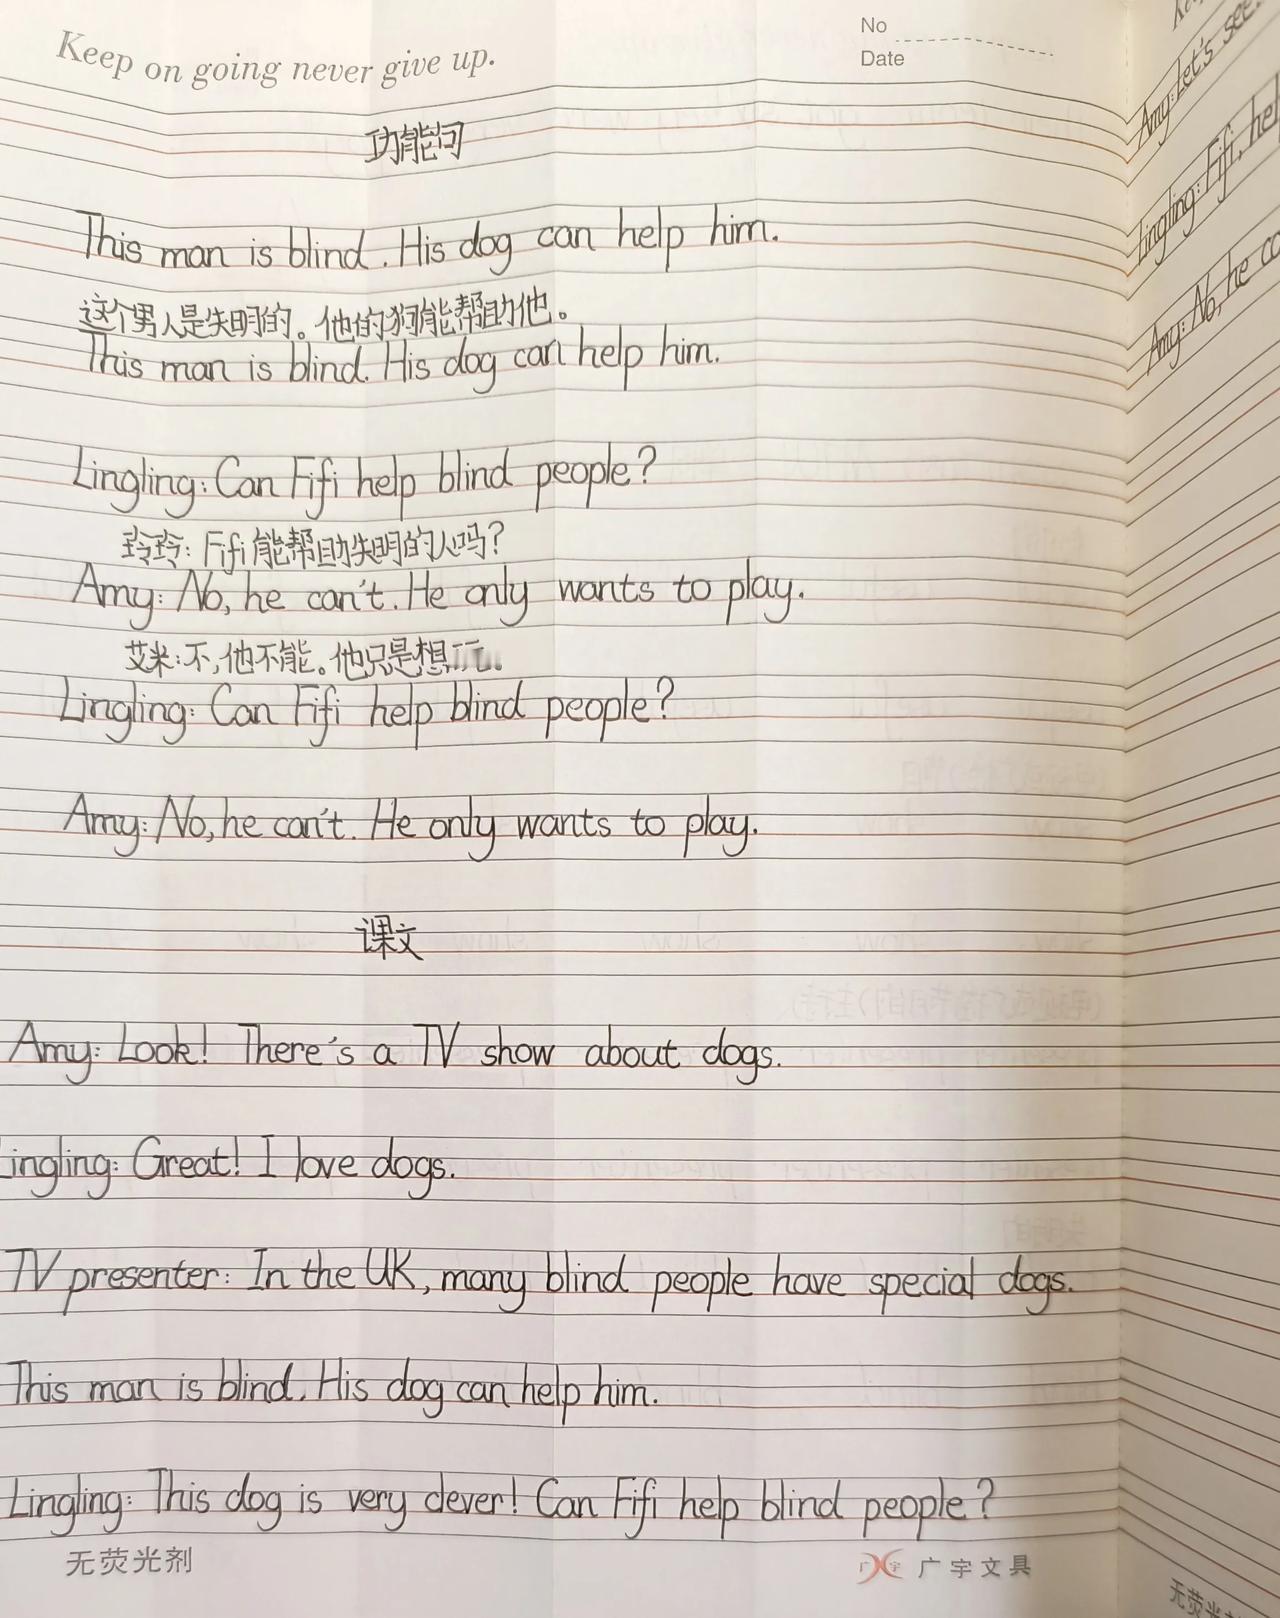 Keep on going never give up.
No
Date
功能句
This man is blind. His dog can help him.
这个男人是失明的。他的狗能帮助他。
This man is blind. His dog can help him.
Lingling: Can Fifi help blind people?
玲玲: Fifi能帮助失明的人吗?
Amy: No, he can't. He only wants to play.
艾米:不,他不能。他只是想玩。
Lingling: Can Fifi help blind people?
Amy: No, he can't. He only wants to play.
课文
Amy: Look! There's a TV show about dogs.
Lingling: Great! I love dogs.
TV presenter: In the UK, many blind people have special dogs.
This man is blind. His dog can help him.
Lingling: This dog is very clever! Can Fifi help blind people?
无荧光剂
广宇 广宇文具
Amy: Let's see.
Lingling: Fifi, hel
Amy: No, he ca
无荧光剂